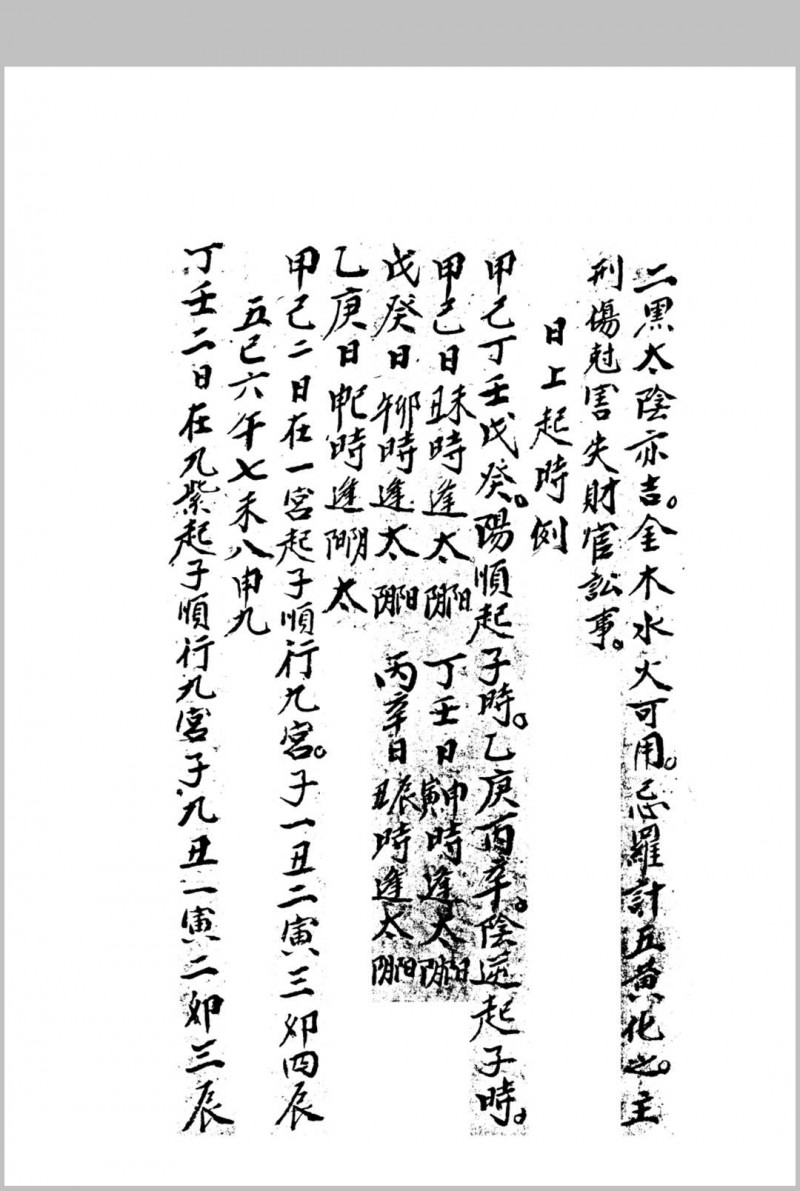 二黑太陰亦吉。金木水火可用。忌羅計五黃化之。主
刑傷尅害失財官訟事。
日上起時例
甲己丁壬戊癸。陽順起子時。乙庚丙辛。陰逆起子時。
甲己日丑未時逢太陰陽 丁壬日寅申時逢太陰陽
戊癸日午卯時逢太陰陽 丙辛日丑辰時逢太陰陽
乙庚日申巳時逢陰陽太
甲己二日在一宮起子順行九宮。子一丑二寅三卯四辰
五巳六午七未八申九
丁壬二日在九紫起子順行九宮子九丑一寅二卯三辰